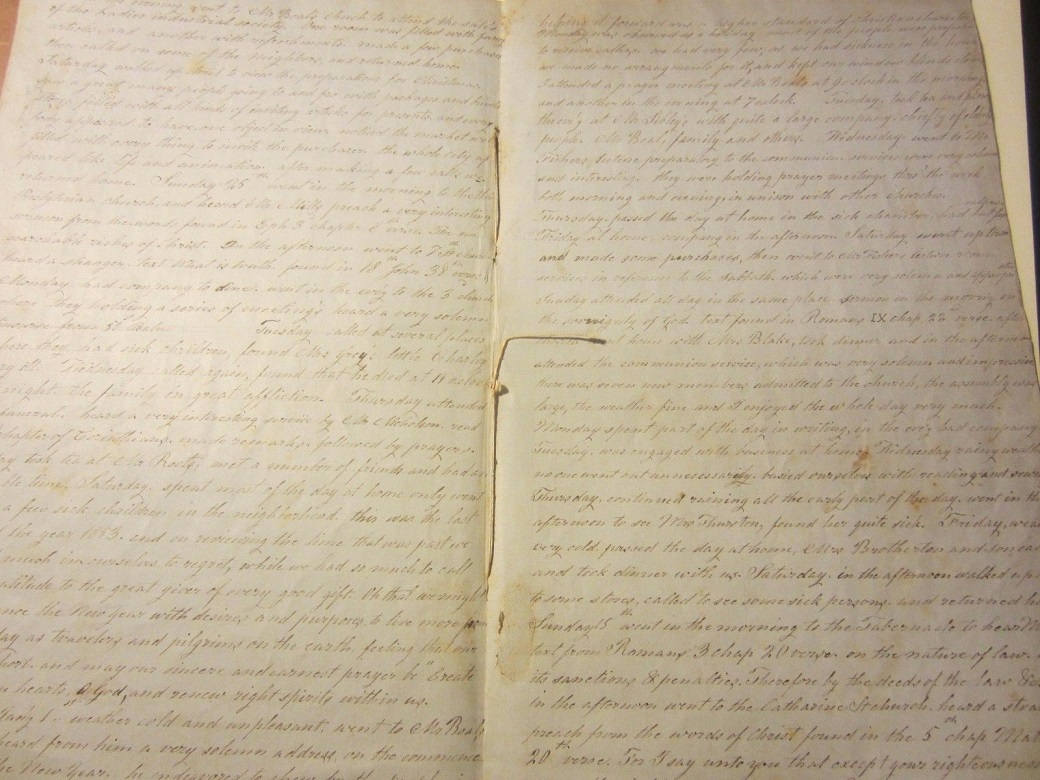 morning went to Mr Beals church to attend the sale
of the Ladies industrial society. One room was filled with fancy
articles, and another with refreshments. made a few purchases
then called on some of the neighbors, and returned home.
Saturday walked up street to view the preparations for Christmas.
saw a great many people going to and fro with packages and
filled with all kinds of inviting articles for presents, and every
body appeared to have one object in view, noticed the market was
filled with every thing to invite the purchaser. the whole city ap
peared like life and animation. after making a few calls we
returned home. Sunday 25th went in the morning to the
Presbyterian church, and heard Mr Mills preach a very interesting
sermon from the words found in Eph 3 chapter 8 verse. The un
searchable riches of Christ. In the afternoon went to 7th church
heard a stranger. text What is truth. found in 18th John 38 verse.
Monday, had company to dine. went in the eve'g to the 3 church
where they holding a series of meeting's heard a very solemn
Tuesday called at several places
here they had sick children, found Mrs Grey's little Charley
ill. Wednesday called again, found that he died at 11 oclock
night. the family in great affliction. Thursday attended
funeral. heard a very interesting service by Mr read
chapter of Corinthians. made remarks, followed by prayers.
took tea at Mr Roots, met a number of friends and had
time. Saturday, spent most of the day at home only went
a few sick children in the neighborhood. this was the last
the year 1853. and on reviewing the time that was past we
much in ourselves to regret, while we had so much to call
gratitude to the great giver of every good gift. Oh that we might
the New Year with desires and purposes to live more
day as travelers and pilgrims on the earth, feeling that our
short. and may our sincere and earnest prayer be "Create
hearts, O God, and renew right spirits within us.
Jany 1 - weather cold and unpleasant, went to Mr Beals
heard from him a very solemn address, on the commence
the New Year. he endeavored to
forward was a higher standard of christian character
Monday was observed as a holiday most of the people were prepared
to receive callers. we had very few, as we had sickness in the house
we made no arrangements for it, and kept our window blinds
I attended a prayer meeting at Mr Beals at 9 oclock in the morning
and another in the evening at 7 oclock. Tuesday, took tea and
at Mr Sibley's, with quite a large company; chiefly of
people. Mr Beal, family and others. Wednesday went to Mr
Fishers lecture preparatory to the communion. services were very solemn
and interesting. they were holding prayer meetings thro' the week
both morning and evening, in unison with other churches.
Thursday, passed the day at home in the sick chamber, had
Friday at home - company in the afternoon. Saturday went up town
and made some purchases, then went to Mr Fishers lecture room
services in reference to the sabbath. which were very solemn and
Sunday attended all day in the same place - sermon in the morning on
the sovereignty of God. text found in Romans IX chap 22 verse. after
home with Mrs Blake, took dinner and in the afternoon
attended the communion service, which was very solemn and impressive
there was seven new members admitted to the church, the assembly was
large, the weather fine and I enjoyed the whole day very much.
Monday spent part of the day in writing, in the eve'g had company
Tuesday, was engaged with business at home. Wednesday rainy weather
no one went out unnecessarily. busied ourselves with reading and sewing
Thursday, continued raining all the early part of the day. went in the
afternoon to see Mrs Thurston, found her quite sick. Friday, weather
very cold. passed the day at home, Mrs Brotherton and son
and took dinner with us. Saturday. in the afternoon walked up
to some stores, called to see some sick persons, and returned
Sunday 15th went in the morning to the Tabernacle to hear
text from Romans 3 chap 20 verse. on the nature of law.
its sanctions & penalties. Therefore by the deeds of the law
in the afternoon went to the Catharine St church. heard a
preach from the words of Christ found in the 5th chap Mat
20th verse. For I say unto you that except your righteousness